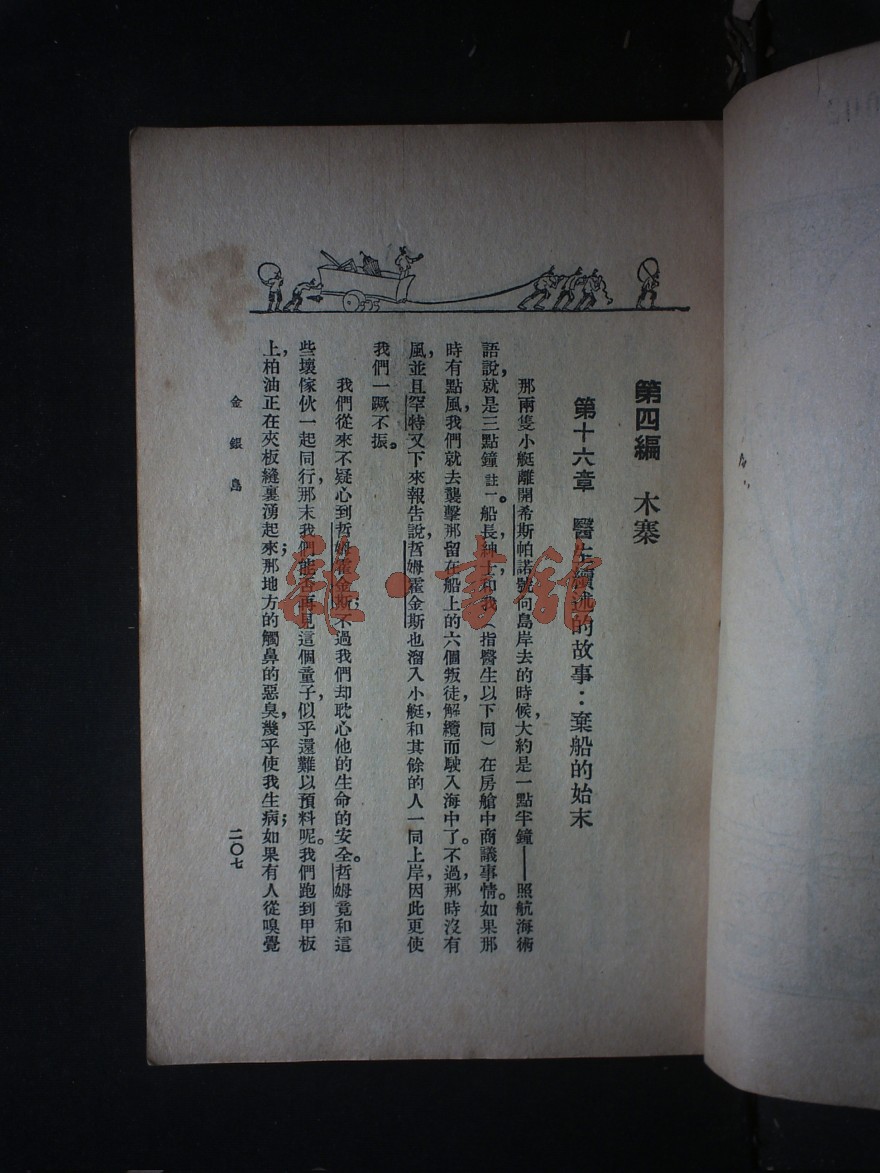 第四編　木寨
第十六章　醫生續述的故事：棄船的始末
那兩隻小艇離開希斯帕諾號向島岸去的時候，大約是一點半鐘——照航海術
語說，就是三點鐘註一。船長，紳士和我（指醫生以下同）在房艙中商議事情。如果那
時有點風，我們就去襲擊那留在船上的六個叛徒，解纜而駛入海中了。不過，那時沒有
風，並且罕特又下來報告說，哲姆霍金斯也溜入小艇，和其餘的人一同上岸，因此更使
我們一蹶不振。
我們從來不疑心到哲姆霍金斯；不過我們却耽心他的生命的安全。哲姆竟和這
些壞傢伙一起同行，那末我們能否再見這個童子，似乎還難以預料呢。我們跑到甲板
上，柏油正在夾板縫裏湧起來；那地方的觸鼻的惡臭，幾乎使我生病；如果有人從嗅覺
金銀島
二〇七
書館